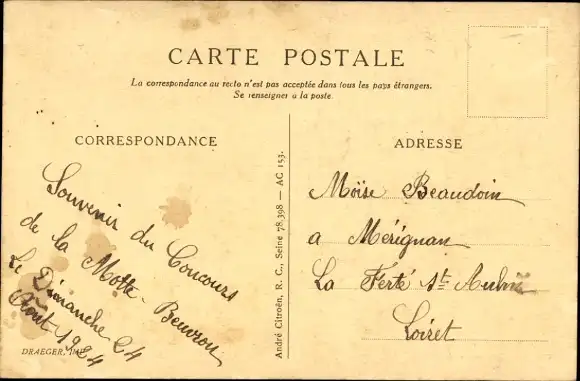 CARTE POSTALE
La correspondance au recto n'est pas acceptée dans tous les pays étrangers.
Se renseigner à la poste.
CORRESPONDANCE
Souvenir du Concours
de la Motte-Beuvron
Le Dimanche 24
Août 1924
DRAEGER, IMP.
André Citroën, R. C., Seine 78.398 — AC 153.
ADRESSE
Moïse Beaudoin
a Mérignan
La Ferté St Aubin
Loiret